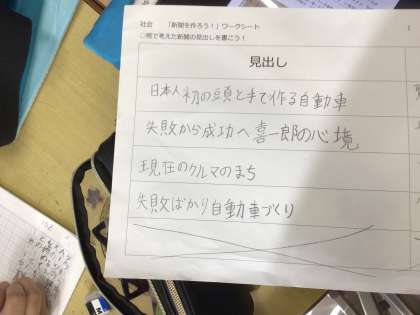 社会 「新聞を作ろう！」ワークシート
○班で考えた新聞の見出しを書こう！
見出し
日本人初の頭と手で作る自動車
失敗から成功へ 喜一郎の心境
現在のクルマのまち
失敗ばかり自動車づくり